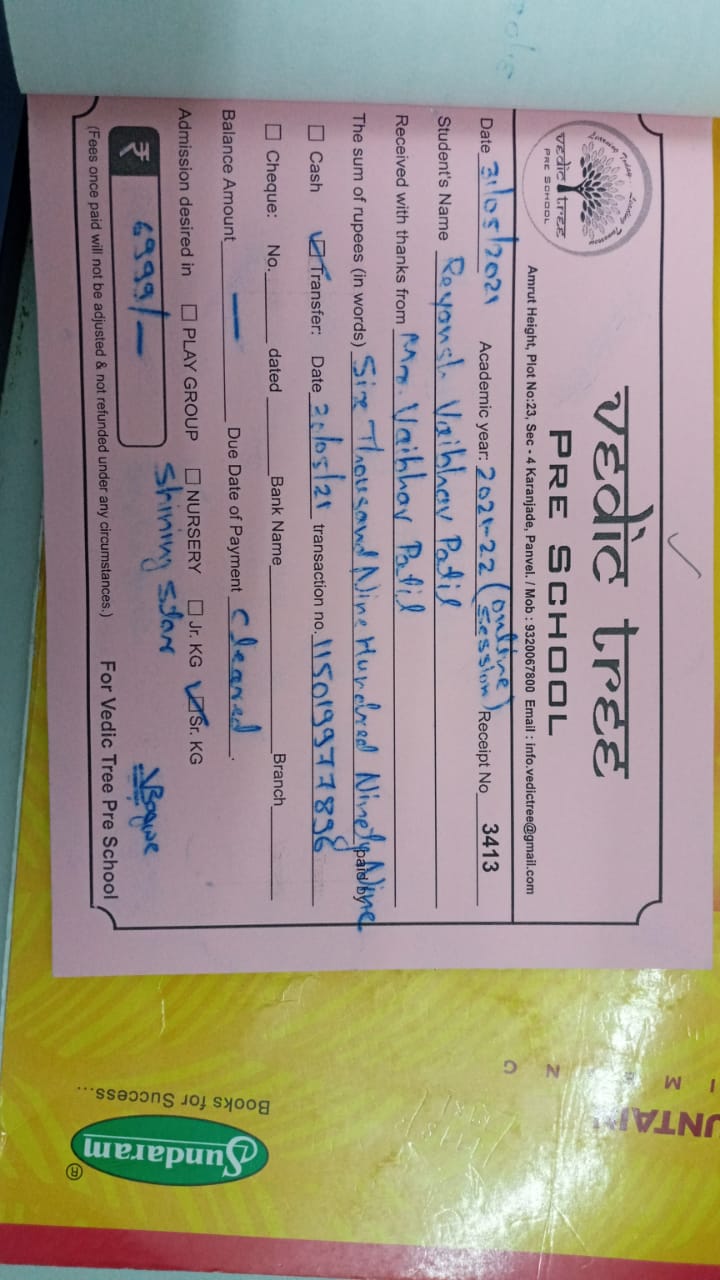 vedic tree
PRE SCHOOL
Learning Today
vedic tree
PRE SCHOOL
Amrut Height, Plot No:23, Sec - 4 Karanjade, Panvel. / Mob : 9320067800 Email : info.vedictree@gmail.com
Date 31/05/2021 Academic year: 2021-22 (online session) Receipt No 3413
Student's Name Reyansh Vaibhav Patil
Received with thanks from Mr. Vaibhav Patil
The sum of rupees (in words) Six Thousand Nine Hundred Ninety Nine paid by
Cash Transfer: Date 30/05/21 transaction no. 115019977896
Cheque: No. dated Bank Name Branch
Balance Amount — Due Date of Payment cleared.
Admission desired in PLAY GROUP NURSERY Jr. KG Sr. KG
Shining Star
₹ 6999/-
(Fees once paid will not be adjusted & not refunded under any circumstances.) For Vedic Tree Pre School
Books for Success...
Sundaram
®